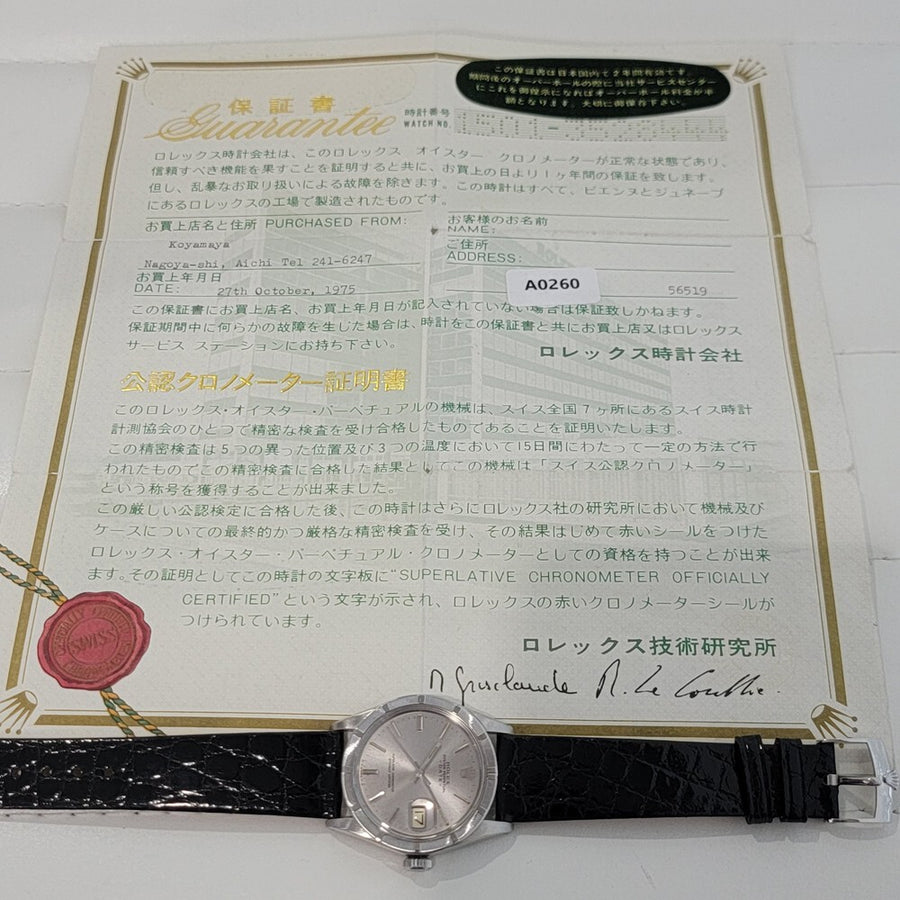 この保証書は日本国内で2年間有効です。
期間後のオーバーホールの際に当社サービスセンター
にこれを御提示になればオーバーホール料金が半
額となります。大切に御保存下さい。
保証書
Guarantee
時計番号
WATCH NO.
ロレックス時計会社は、このロレックス オイスター クロノメーターが正常な状態であり、
信頼すべき機能を果すことを証明すると共に、お買上の日より1ヶ年間の保証を致します。
但し、乱暴なお取り扱いによる故障を除きます。この時計はすべて、ビエンヌとジュネーブ
にあるロレックスの工場で製造されたものです。
お買上店名と住所 PURCHASED FROM:
Koyamaya
Nagoya-shi, Aichi Tel 241-6247
お買上年月日
DATE: 27th October, 1975
お客様のお名前
NAME:
ご住所
ADDRESS:
A0260
56519
この保証書にお買上店名、お買上年月日が記入されていない場合は保証致しかねます。
保証期間中に何らかの故障を生じた場合は、時計をこの保証書と共にお買上店又はロレックス
サービス ステーションにお持ち下さい。
ロレックス時計会社
公認クロノメーター証明書
このロレックス・オイスター・パーペチュアルの機械は、スイス全国7ヶ所にあるスイス時計
計測協会のひとつで精密な検査を受け合格したものであることを証明いたします。
この精密検査は5つの異った位置及び3つの温度において15日間にわたって一定の方法で行
われたものでこの精密検査に合格した結果としてこの機械は「スイス公認クロノメーター」
という称号を獲得することが出来ました。
この厳しい公認検定に合格した後、この時計はさらにロレックス社の研究所において機械及び
ケースについての最終的かつ厳格な精密検査を受け、その結果はじめて赤いシールをつけた
ロレックス・オイスター・パーペチュアル・クロノメーターとしての資格を持つことが出来
ます。その証明としてこの時計の文字板に"SUPERLATIVE CHRONOMETER OFFICIALLY
CERTIFIED"という文字が示され、ロレックスの赤いクロノメーターシールが
つけられています。
ロレックス技術研究所
SWISS
ROLEX
DATE
17